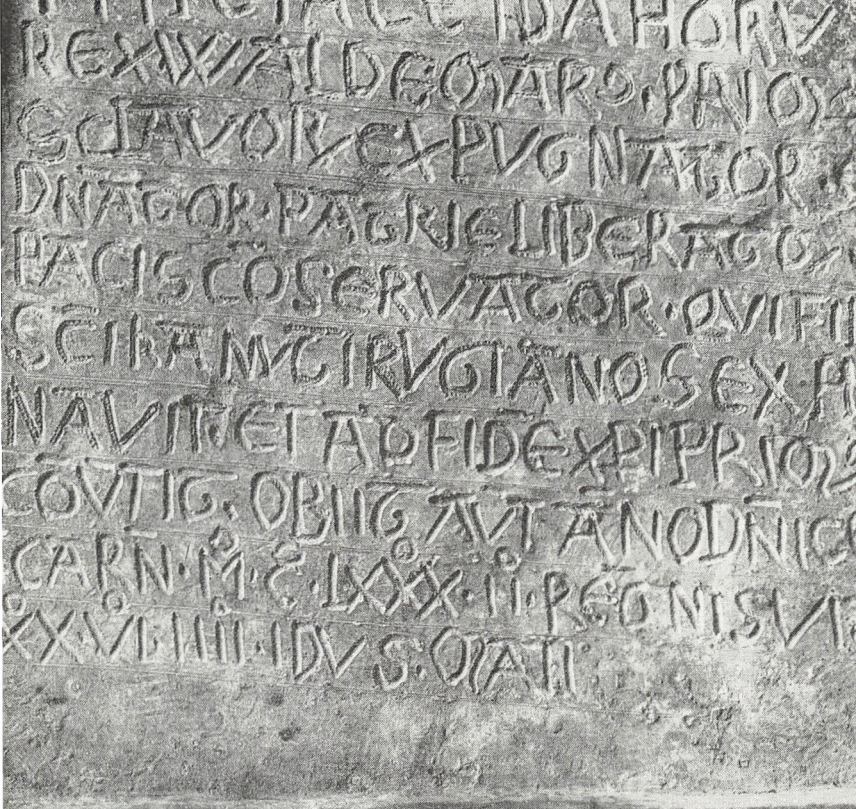 HIC IACET DANORV
REX WALDEMARꝰ · PRIMꝰ
SCLAVOR EXPVGNATOR
DNATOR · PATRIE LIBERATOR
PACIS COSERVATOR · QVI FILI
SCI KANVTI RVGIANOS EXPV
NAVIT · ET AD FIDE XPI PRIMꝰ
COVTIT · OBIIT AVT ANO DNICE
CARN · M · C · LXXX · II · REGNI SVI
XXVI IIII · IDVS · MAII